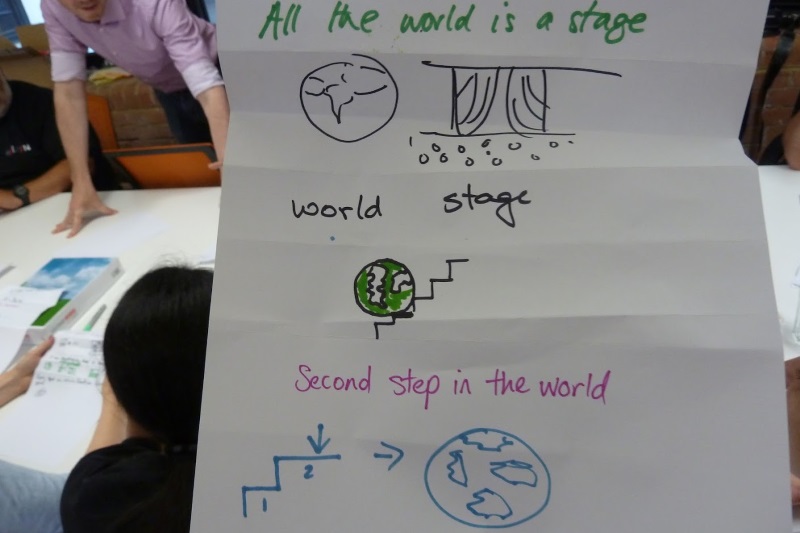 All the world is a stage
world stage
Second step in the world
1 2